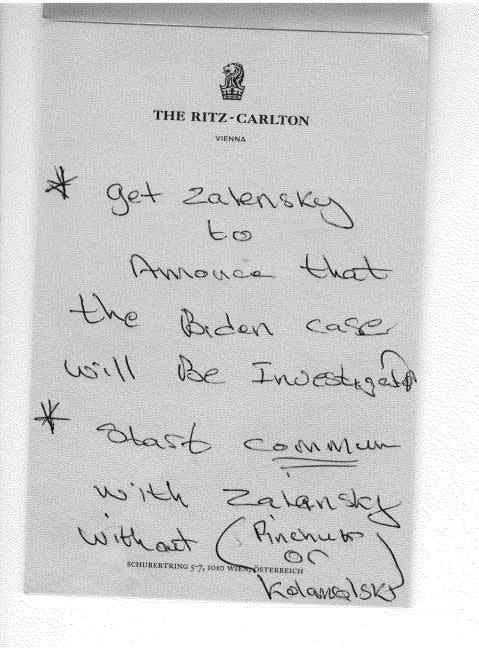 THE RITZ-CARLTON
VIENNA
* get Zalensky
to
Annouce that
the Biden case
will Be Investigated
* start commun
with Zalensky
without (Pinchuk
or
SCHUBERTRING 5-7, 1010 WIEN, ÖSTERREICH
Kolamoisky)